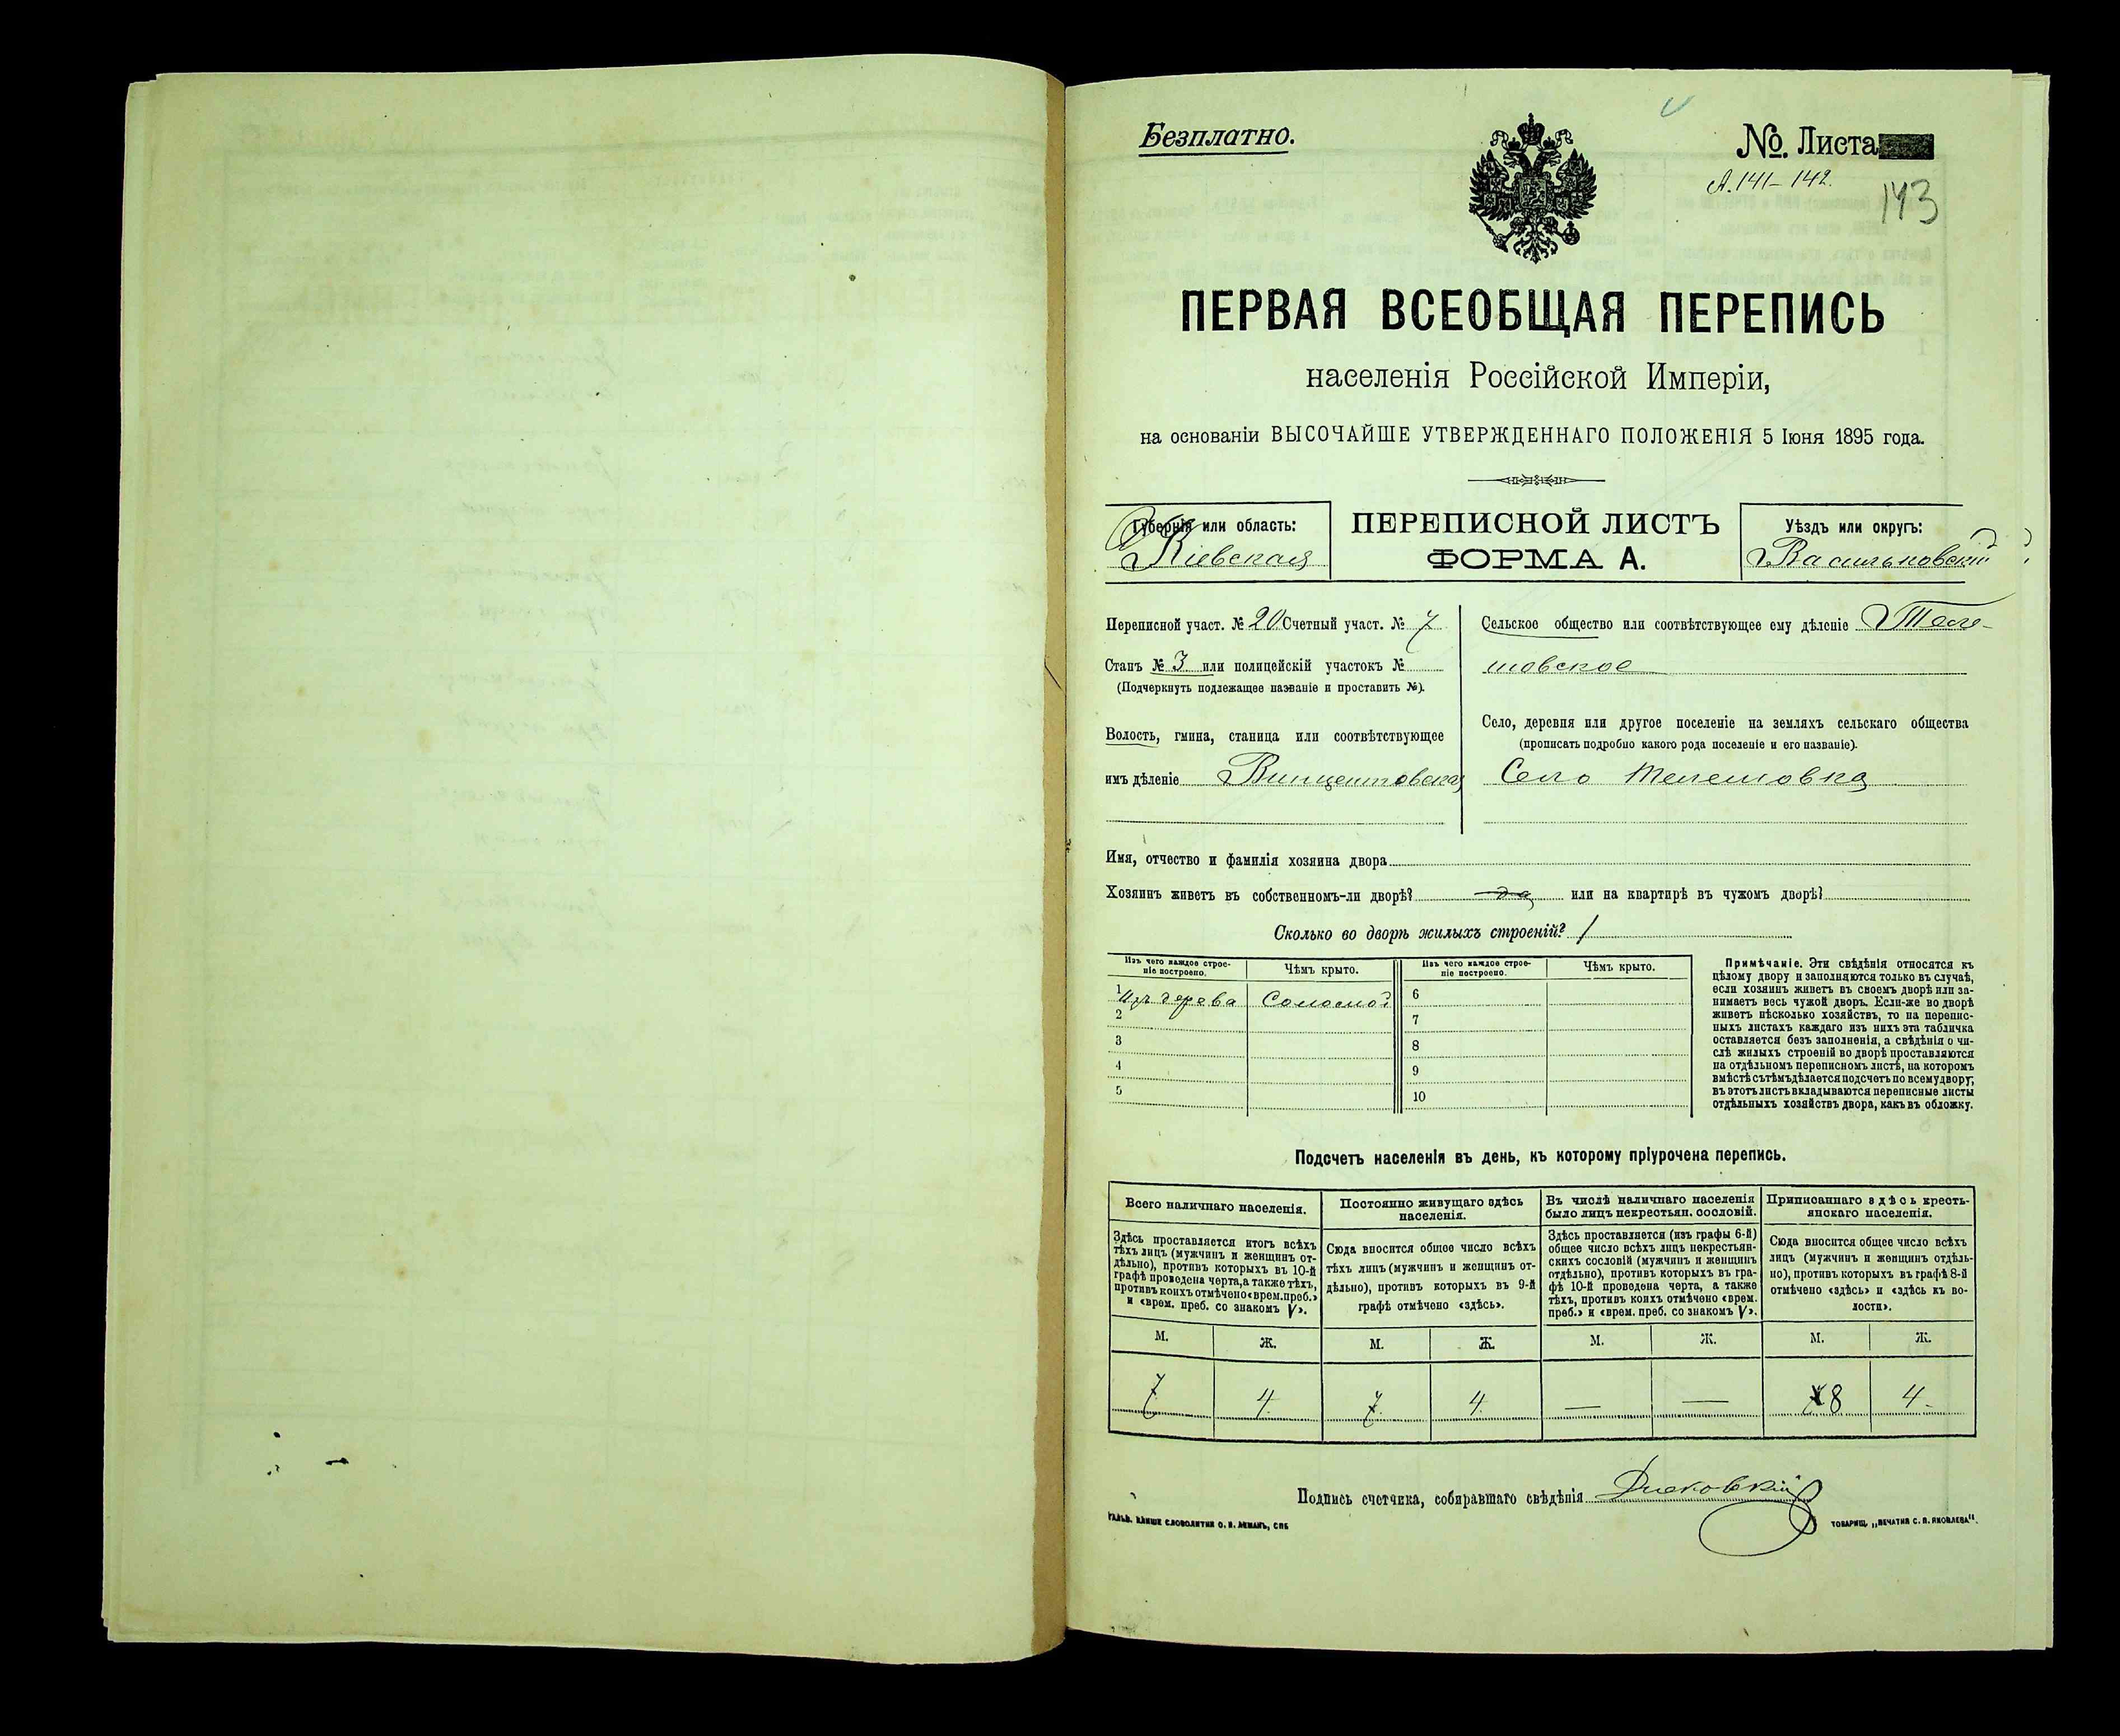 Безплатно.
№. Листа
А. 141–142.
143
ПЕРВАЯ ВСЕОБЩАЯ ПЕРЕПИСЬ
населенія Россійской Имперіи,
на основаніи ВЫСОЧАЙШЕ УТВЕРЖДЕННАГО ПОЛОЖЕНІЯ 5 Іюня 1895 года.
Губернія или область:
Кіевская
ПЕРЕПИСНОЙ ЛИСТЪ
ФОРМА А.
Уѣздъ или округъ:
Васильковскій
Переписной участ. № 20 Счетный участ. № 7
Станъ № 3 или полицейскій участокъ №
(Подчеркнуть подлежащее названіе и проставить №).
Волость, гмина, станица или соотвѣтствующее
имъ дѣленіе Винцентовская
Сельское общество или соотвѣтствующее ему дѣленіе Теле-
шовское
Село, деревня или другое поселеніе на земляхъ сельскаго общества
(прописать подробно какого рода поселеніе и его названіе).
Село Телешовка
Имя, отчество и фамилія хозяина двора
Хозяинъ живетъ въ собственномъ-ли дворѣ? да или на квартирѣ въ чужомъ дворѣ?
Сколько во дворѣ жилыхъ строеній? 1
Изъ чего каждое строе-
ніе построено.
Чѣмъ крыто.
1 Изъ дерева Соломой
2
3
4
5
Изъ чего каждое строе-
ніе построено.
Чѣмъ крыто.
6
7
8
9
10
Примѣчаніе. Эти свѣдѣнія относятся къ
цѣлому двору и заполняются только въ случаѣ,
если хозяинъ живетъ въ своемъ дворѣ или за-
нимаетъ весь чужой дворъ. Если-же во дворѣ
живетъ нѣсколько хозяйствъ, то на перепис-
ныхъ листахъ каждаго изъ нихъ эта табличка
оставляется безъ заполненія, а свѣдѣнія о чи-
слѣ жилыхъ строеній во дворѣ проставляются
на отдѣльномъ переписномъ листѣ, на которомъ
вмѣстѣ съ тѣмъ дѣлается подсчетъ по всему двору;
въ этотъ листъ вкладываются переписные листы
отдѣльныхъ хозяйствъ двора, какъ въ обложку.
Подсчетъ населенія въ день, къ которому пріурочена перепись.
Всего наличнаго населенія.
Здѣсь проставляется итогъ всѣхъ
тѣхъ лицъ (мужчинъ и женщинъ от-
дѣльно), противъ которыхъ въ 10-й
графѣ проведена черта, а также тѣхъ,
противъ коихъ отмѣчено «врем. преб.»
и «врем. преб. со знакомъ V».
Постоянно живущаго здѣсь
населенія.
Сюда вносится общее число всѣхъ
тѣхъ лицъ (мужчинъ и женщинъ от-
дѣльно), противъ которыхъ въ 9-й
графѣ отмѣчено «здѣсь».
Въ числѣ наличнаго населенія
было лицъ некрестьян. сословій.
Здѣсь проставляется (изъ графы 6-й)
общее число всѣхъ лицъ некрестьян-
скихъ сословій (мужчинъ и женщинъ
отдѣльно), противъ которыхъ въ гра-
фѣ 10-й проведена черта, а также
тѣхъ, противъ коихъ отмѣчено «врем.
преб.» и «врем. преб. со знакомъ V».
Приписаннаго здѣсь кресть-
янскаго населенія.
Сюда вносится общее число всѣхъ
лицъ (мужчинъ и женщинъ отдѣль-
но), противъ которыхъ въ графѣ 8-й
отмѣчено «здѣсь» и «здѣсь къ во-
лости».
М. Ж. М. Ж. М. Ж. М. Ж.
7 4 7 4 — — 8 4
Подпись счетчика, собиравшаго свѣдѣнія
ГАЛЬВ. КЛИШЕ СЛОВОЛИТНИ О. И. ЛЕМАНЪ, СПБ
ТОВАРИЩ. „ПЕЧАТНЯ С. П. ЯКОВЛЕВА".